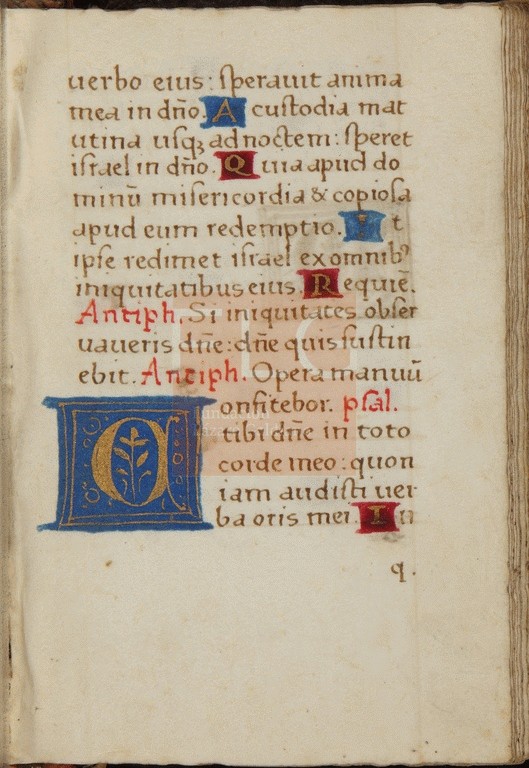 uerbo eius: sperauit anima
mea in dño. A custodia mat
utina usqꝫ ad noctem: speret
israel in dño. Quia apud do
minū misericordia & copiosa
apud eum redemptio. Et
ipse redimet israel ex omnibꝰ
iniquitatibus eius. Requiē.
Antiph. Si iniquitates obser
uaueris dñe: dñe quis sustin
ebit. Antiph. Opera manuū
Confitebor. psal.
tibi dñe in toto
corde meo: quon
iam audisti uer
ba oris mei. In
q.